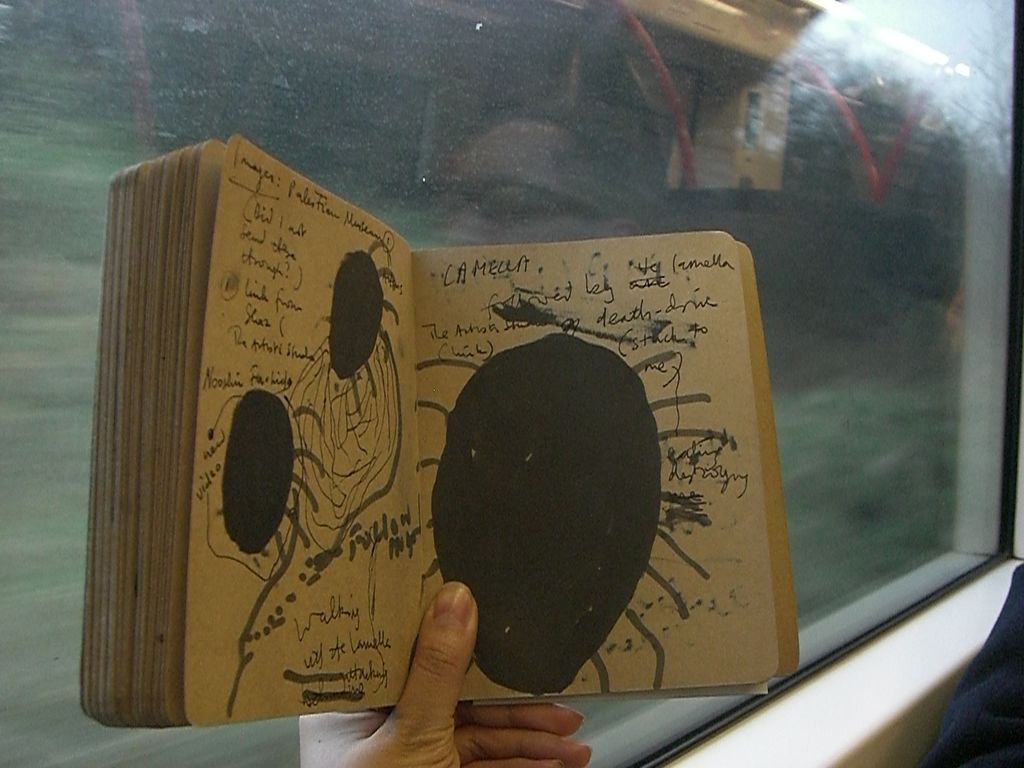 Images: Palestian Museum
(Did I not
send these
through?)
link from
Shez (
The Artist's Studio
Nooshin Farhid
new
video
walking
with the lamella
attacking
LAMELLA
the lamella
followed by
death-drive
The Artist's Studio
(link)
(stuck to
me)
eating
destroying
me